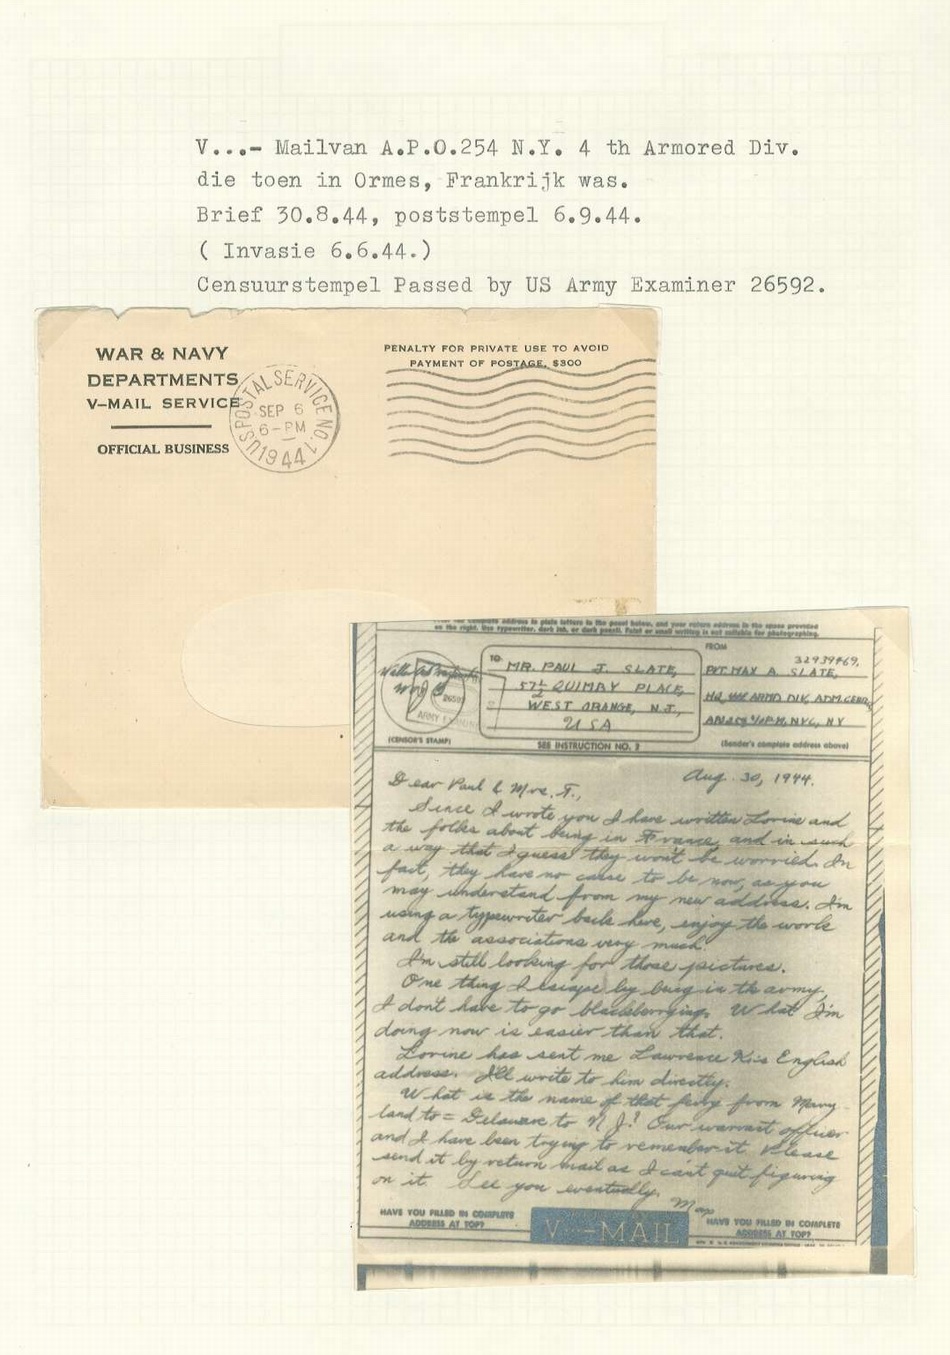 V...- Mailvan A.P.O.254 N.Y. 4 th Armored Div.
die toen in Ormes, Frankrijk was.
Brief 30.8.44, poststempel 6.9.44.
( Invasie 6.6.44.)
Censuurstempel Passed by US Army Examiner 26592.
WAR & NAVY
DEPARTMENTS
V-MAIL SERVICE
OFFICIAL BUSINESS
U.S. POSTAL SERVICE NO. 1
SEP 6
6-PM
1944
PENALTY FOR PRIVATE USE TO AVOID
PAYMENT OF POSTAGE, $300
complete address in plain letters in the panel below, and your return address in the space provided
on the right. Use typewriter, dark ink, or dark pencil. Faint or small writing is not suitable for photographing.
26592
ARMY EXAMINER
(CENSOR'S STAMP)
TO:
MR. PAUL J. SLATE,
57½ QUIMBY PLACE,
WEST ORANGE, N.J.,
USA
SEE INSTRUCTION NO. 2
FROM
32939469,
PVT. MAX A. SLATE,
HQ, ARMD DIV, ADM. CENTER,
PM, NYC, NY
(Sender's complete address above)
Aug. 30, 1944.
Dear Paul & Mrs. T.,
Since I wrote you I have written Lorine and
the folks about being in France, and in such
a way that I guess they won't be worried. In
fact, they have no cause to be now, as you
may understand from my new address. I'm
using a typewriter back here, enjoy the work
and the associations very much.
I'm still looking for those pictures.
One thing I escape by being in the army,
I don't have to go blackberrying. What I'm
doing now is easier than that.
Lorine has sent me Lawrence K's English
address. I'll write to him directly.
What is the name of that ferry from Mary-
land to = Delaware to N.J.? Our warrant officer
and I have been trying to remember it. Please
send it by return mail as I can't quit figuring
on it. See you eventually.
Max
HAVE YOU FILLED IN COMPLETE
ADDRESS AT TOP?
V···-MAIL
HAVE YOU FILLED IN COMPLETE
ADDRESS AT TOP?